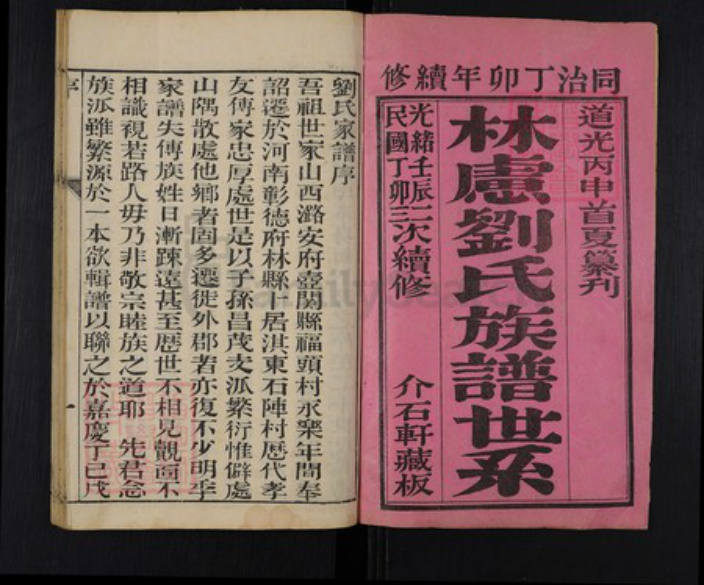 同治丁卯年續修
道光丙申首夏纂刋
林慮劉氏族譜世系
光緒壬辰
民國丁卯三次續修
介石軒藏板
劉氏家譜序
吾祖世家山西潞安府壺關縣福頭村永樂年間奉
詔遷於河南彰德府林縣卜居淇東石陣村歷代孝
友傳家忠厚處世是以子孫昌茂支派繁衍惟僻處
山隅散處他鄉者固多遷徙外郡者亦復不少明季
家譜失傳族姓日漸踈遠甚至歷世不相見覿面不
相識視若路人毋乃非敬宗睦族之道耶 先君念
族派雖繁源於一本欲輯譜以聯之於嘉慶丁巳戊
序
一